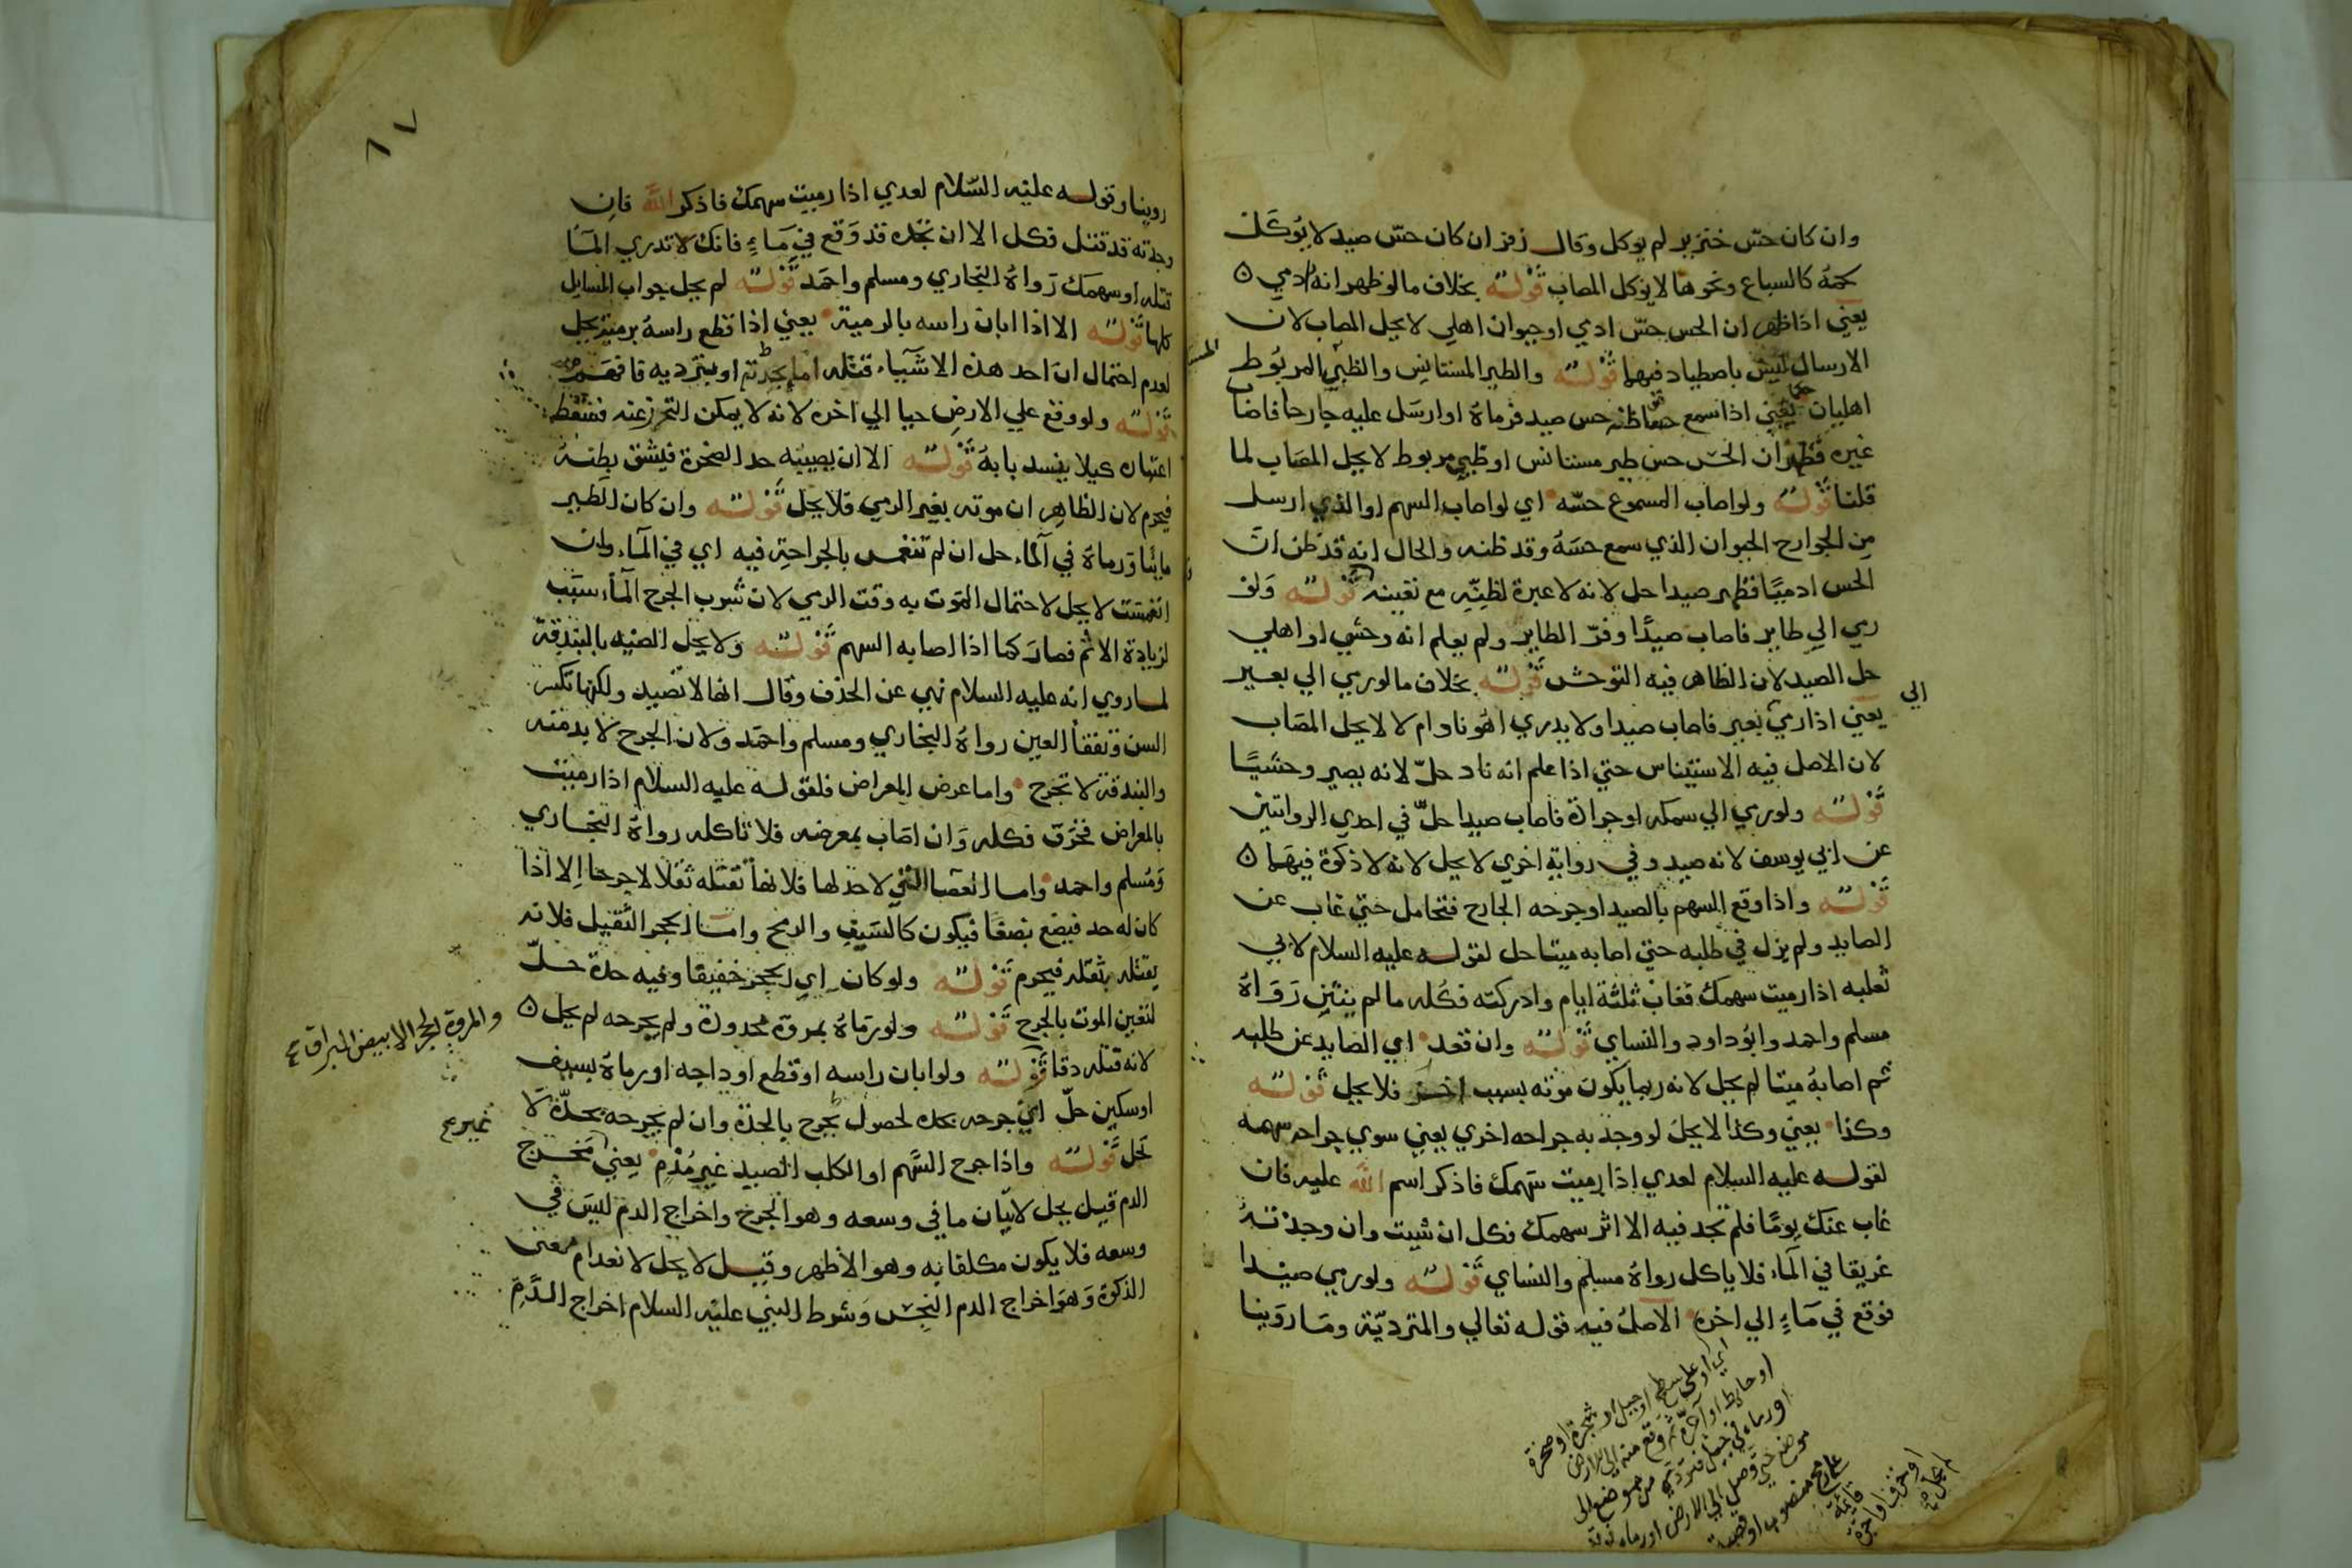 وان كان حسّ خنزير لم يوكل وقال زفر ان كان حسّ صيد لا يُوكَل
لحمُه كالسباع ونحوها لا يوكل المصاب قَوْلـــُه بخلاف ما لو ظهر انه ادمي ه
يعني اذا ظهر ان الحس حسّ ادمي او حيوان اهلي لا يحل المصاب لان
الارسال ليس باصطياد فيهما قَوْلـــُه والطير المستانس والظبي المربُوط
اهليان حكما يعني اذا سمع حسا ظنه حس صيد فرماهُ او ارسَل عليه جارحا فاصاب
غيره فظهر ان الحس حس طير مستانس او ظبي مربوط لا يحل المصَاب لما
قلنا قَوْلـــُه ولو اصاب المسموع حسّه اي لو اصاب السهم او الذي ارسل
مِن الجوارح الحيوان الذي سمع حسَهُ وقد ظنه والحال انه قد ظن انّ
الحس ادميًا فظهر صيدا حل لانه لا عبرة لظنّه مع تعينه قَوْلـــُه وَلو
رمي الي طاير فاصاب صيدًا وفرّ الطاير ولم يعلم انه وحشي او اهلي
حل الصيد لان الظاهر فيه التوحش قَوْلـــُه بخلاف ما لو رمي الي بعير
الى
يعني اذا رمي بعير فاصاب صيدا ولا يدري اهُو ناد ام لا لا يحل المصَاب
لان الاصل فيه الاستيناس حتي اذا علم انه ناد حلّ لانه يصير وحشيًا
قَوْلـــُه ولو رمي الي سمكه او جرادة فاصاب صيدا حلّ في احدي الروايتين
عن ابي يوسف لانه صيد وفي رواية اخري لا يحل لانه لا ذكوة فيهَما ه
قَوْلـــُه واذا وقع السهم بالصيد او جرحه الجارح فتحامل حتي غاب عن
الصايد ولم يزل في طلبه حتي اصابه ميتا حل لقوله عليه السلام لابي
ثعلبه اذا رميت سهمك فغاب ثلثة ايام وادركته فكُله ما لم ينتن رَوَاهُ
مسلم واحمد وابُو داود والنساي قَوْلـــُه وان قعد اي الصايد عن طلبه
ثم اصابهُ ميتا لم يحل لانه ربما يكون موته بسبب اخر فلا يحل قَوْلـــُه
وكذا يعني وكذا لا يحل لو وجد به جراحه اخري يعني سوي جراحه سهمه
لقوله عليه السلام لعدي اذا رميت سَهمك فاذكر اسم الله عليه فان
غاب عنك يومًا فلم تجد فيه الا اثر سهمك فكل ان شيت وان وجدته
غريقا في المآء فلا ياكل رواهُ مسلم والنساي قَوْلـــُه ولو رمي صيدا
فوقع في مَاءٍ الي اخره الاصلُ فيه قوله تعالي والمتردّية ومَا روَينا
اي او على سطح او جبل او شجرة او صخرة
او حايط او آجرّة ثم وقع منه الى الارض
او رماه في جبل فتردّي من موضع الى
موضع حتي وصل الي الارض او رماه
او حرف اجرة
٦٧
روينا وقوله عليْه السّلام لعدي اذا رميت سهمك فاذكر اللَّه فان
وجدته قد قتل فكل الا ان تجده قد وَقع في مَاءٍ فانك لا تدري المآ
قتله او سهمك رَواهُ البخاري ومسلم واحمَد قَوْلـــُه لم يحل جواب المسايل
كلها قَوْلـــُه الا اذا ابان راسه بالرمية يعني اذا قطع راسهُ برميته يحل
لعدم احتمال انّ احد هذه الاشيَآء قتله
قَوْلـــُه ولو وقع علي الارض حيا الي اخره لانه لا يمكن التحرز عنه فسَقط
اعتباره كيلا ينسد بابهُ قَوْلـــُه الا ان يصيبَه حد الصخرة فينشق بطنهُ
فيحرم لان الظاهر ان موته بغير الرمي فلا يحل قَوْلـــُه وان كان الطير
مائيًا ورماهُ في المآء حل ان لم تنغمس بالجراحة فيه اي في المآء وان
انغمست لا يحل لاحتمال المَوت به وقت الرمي لان شرب الجرح المآء سَبَب
لزيادة الالم فصارَ كما اذا اصابه السهم قَوْلـــُه ولا يحل الصيد بالبندقة
لما روي انه عليه السلام نهي عن الحذف وقال انها لا تصيد ولكنها تكسر
السن وتفقأ العين رواهُ البخاري ومسلم واحمَد ولان الجرح لا بد منه
والبندقة لا تجرح واما عرض المعراض فلقوله عليه السلام اذا رميت
بالمعراض فخرَق فكله وَان اصَاب بمعرضه فلا تاكله رواهُ البخاري
وَمُسلم واحمد واما العصا التي لا حد لها فلانها تقتله ثقلا لا جرحا الا اذا
كان له حد فيبضع بضعًا فيكون كالسَيف والرمح واما الحجر الثقيل فلانه
يقتله بثقله فيحرم قَوْلـــُه ولو كان اي الحجر خفيفا وفيه حدة حلّ
لتعين الموت بالجرح قَوْلـــُه ولو رَماهُ بمروة محدودة ولم يجرحه لم يحل ه
والمروة الحجر الابيض البراق
لانه قتله دقا قَوْلـــُه ولو ابان راسه او قطع اوداجه او رماهُ بسيف
او سكين حلّ اي جرحه بحده لحصول الجرح بالحدة وان لم يجرحه بحدّة لا
يحل قَوْلـــُه واذا جرح السَّهم او الكلب الصيد غير مُدْمٍ يعني مخرج
الدم قيل يحل لاتيان ما في وسعه وهو الجرح واخراج الدم ليسَ في
وسعه فلا يكون مكلفا به وهو الاظهر وقيل لا يحل لانعدام معنى
الذكوة وَهوَ اخراج الدم النجس وَشرط النبي عليْه السلام اخراج الدَّمِ